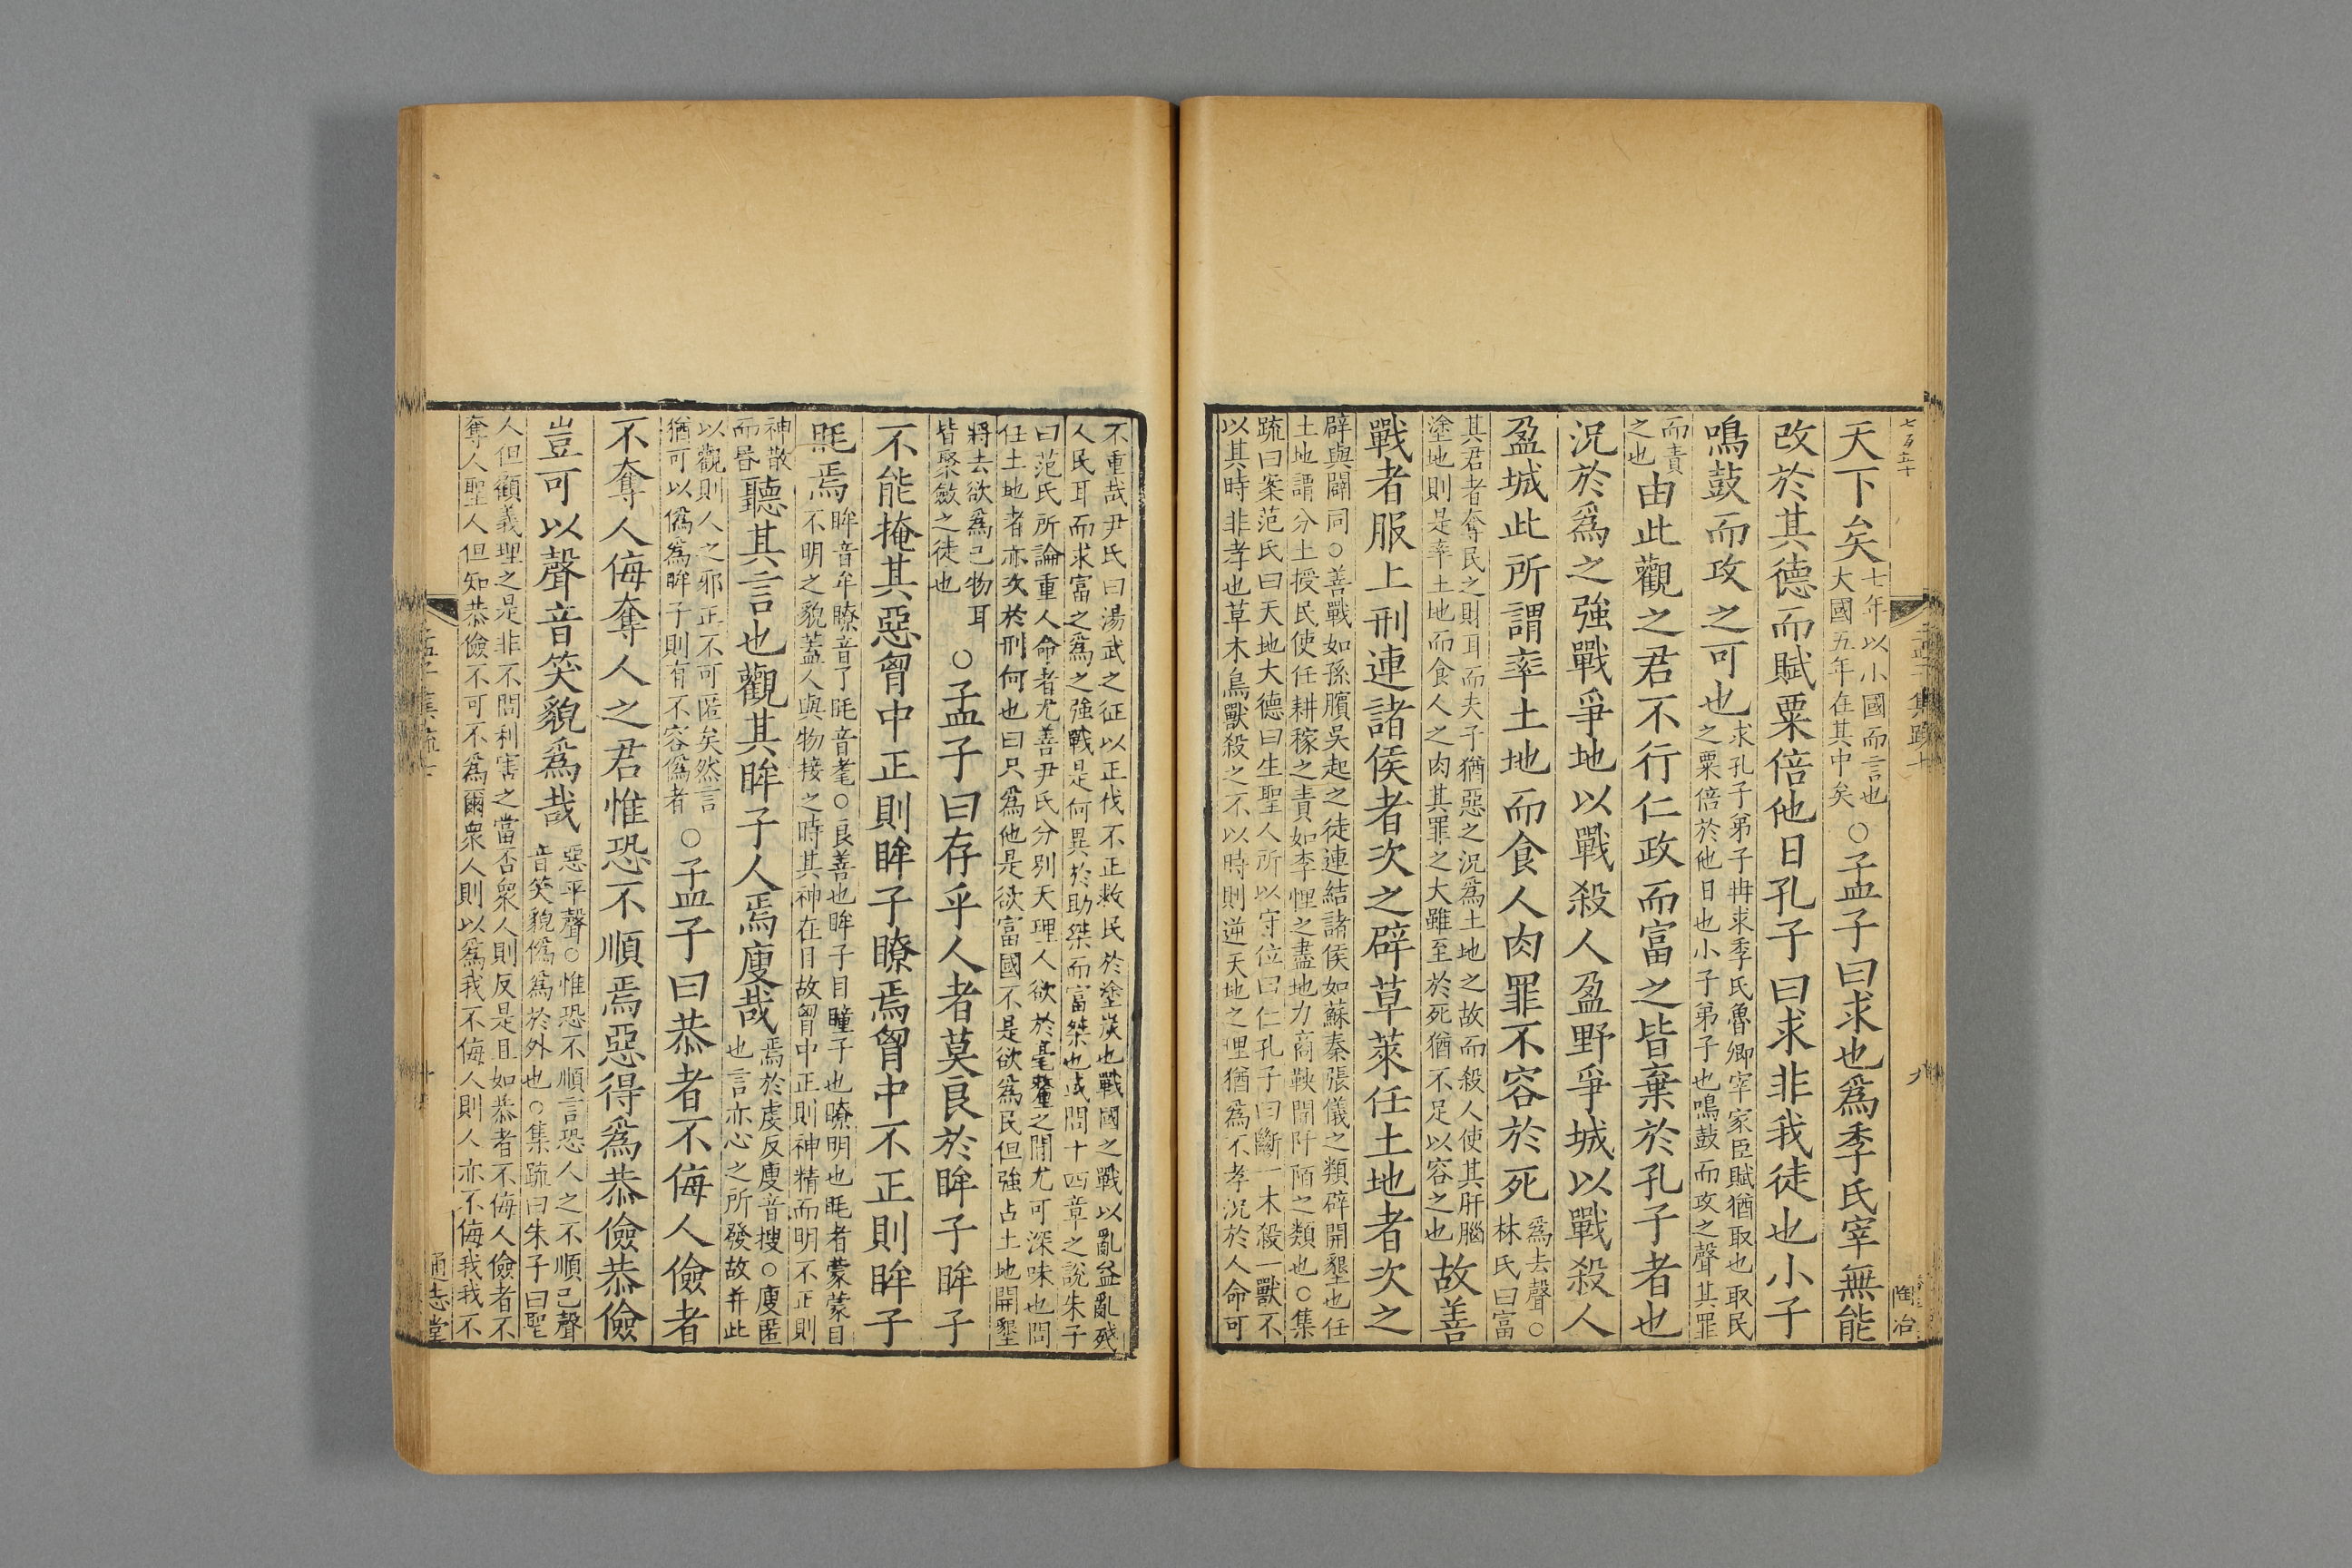 天下矣七年以小國而言也大國五年在其中矣○孟子曰求也爲季氏宰無能
改於其德而賦粟倍他日孔子曰求非我徒也小子
鳴鼓而攻之可也求孔子弟子冉求季氏魯卿宰家臣賦猶取也取民之粟倍於他日也小子弟子也鳴鼓而攻之聲其罪
而責之也由此觀之君不行仁政而富之皆棄於孔子者也
況於爲之強戰爭地以戰殺人盈野爭城以戰殺人
盈城此所謂率土地而食人肉罪不容於死爲去聲○林氏曰富
其君者奪民之財耳而夫子猶惡之況爲土地之故而殺人使其肝腦塗地則是率土地而食人之肉其罪之大雖至於死猶不足以容之也故善
戰者服上刑連諸侯者次之辟草萊任土地者次之
辟與闢同○善戰如孫臏吳起之徒連結諸侯如蘇秦張儀之類辟開墾也任
土地謂分土授民使任耕稼之責如李悝之盡地力商鞅開阡陌之類也○集
疏曰案范氏曰天地大德曰生聖人所以守位曰仁孔子曰斷一木殺一獸不
以其時非孝也草木鳥獸殺之不以時則逆天地之理猶爲不孝況於人命可
不重哉尹氏曰湯武之征以正伐不正救民於塗炭也戰國之戰以亂益亂殘
人民耳而求富之爲之強戰是何異於助桀而富桀也或問十四章之說朱子
曰范氏所論重人命者尤善尹氏分別天理人欲於毫釐之間尤可深味也問
任土地者亦次於刑何也曰只爲他是欲富國不是欲爲民但強占土地開墾
將去欲爲己物耳皆聚斂之徒也○孟子曰存乎人者莫良於眸子眸子
不能掩其惡胷中正則眸子瞭焉胷中不正則眸子
眊焉眸音牟瞭音了眊音耄○良善也眸子目瞳子也瞭明也眊者蒙蒙目不明之貌蓋人與物接之時其神在目故胷中正則神精而明不正則
神散而昬聽其言也觀其眸子人焉廋哉焉於虔反廋音搜○廋匿也言亦心之所發故并此
以觀則人之邪正不可匿矣然言猶可以僞爲眸子則有不容僞者○孟子曰恭者不侮人儉者
不奪人侮奪人之君惟恐不順焉惡得爲恭儉恭儉
豈可以聲音笑貌爲哉惡平聲○惟恐不順言恐人之不順己聲音笑貌僞爲於外也○集疏曰朱子曰聖
人但顧義理之是非不問利害之當否衆人則反是且如恭者不侮人儉者不
奪人聖人但知恭儉不可不爲爾衆人則以爲我不侮人則人亦不侮我我不
通志堂